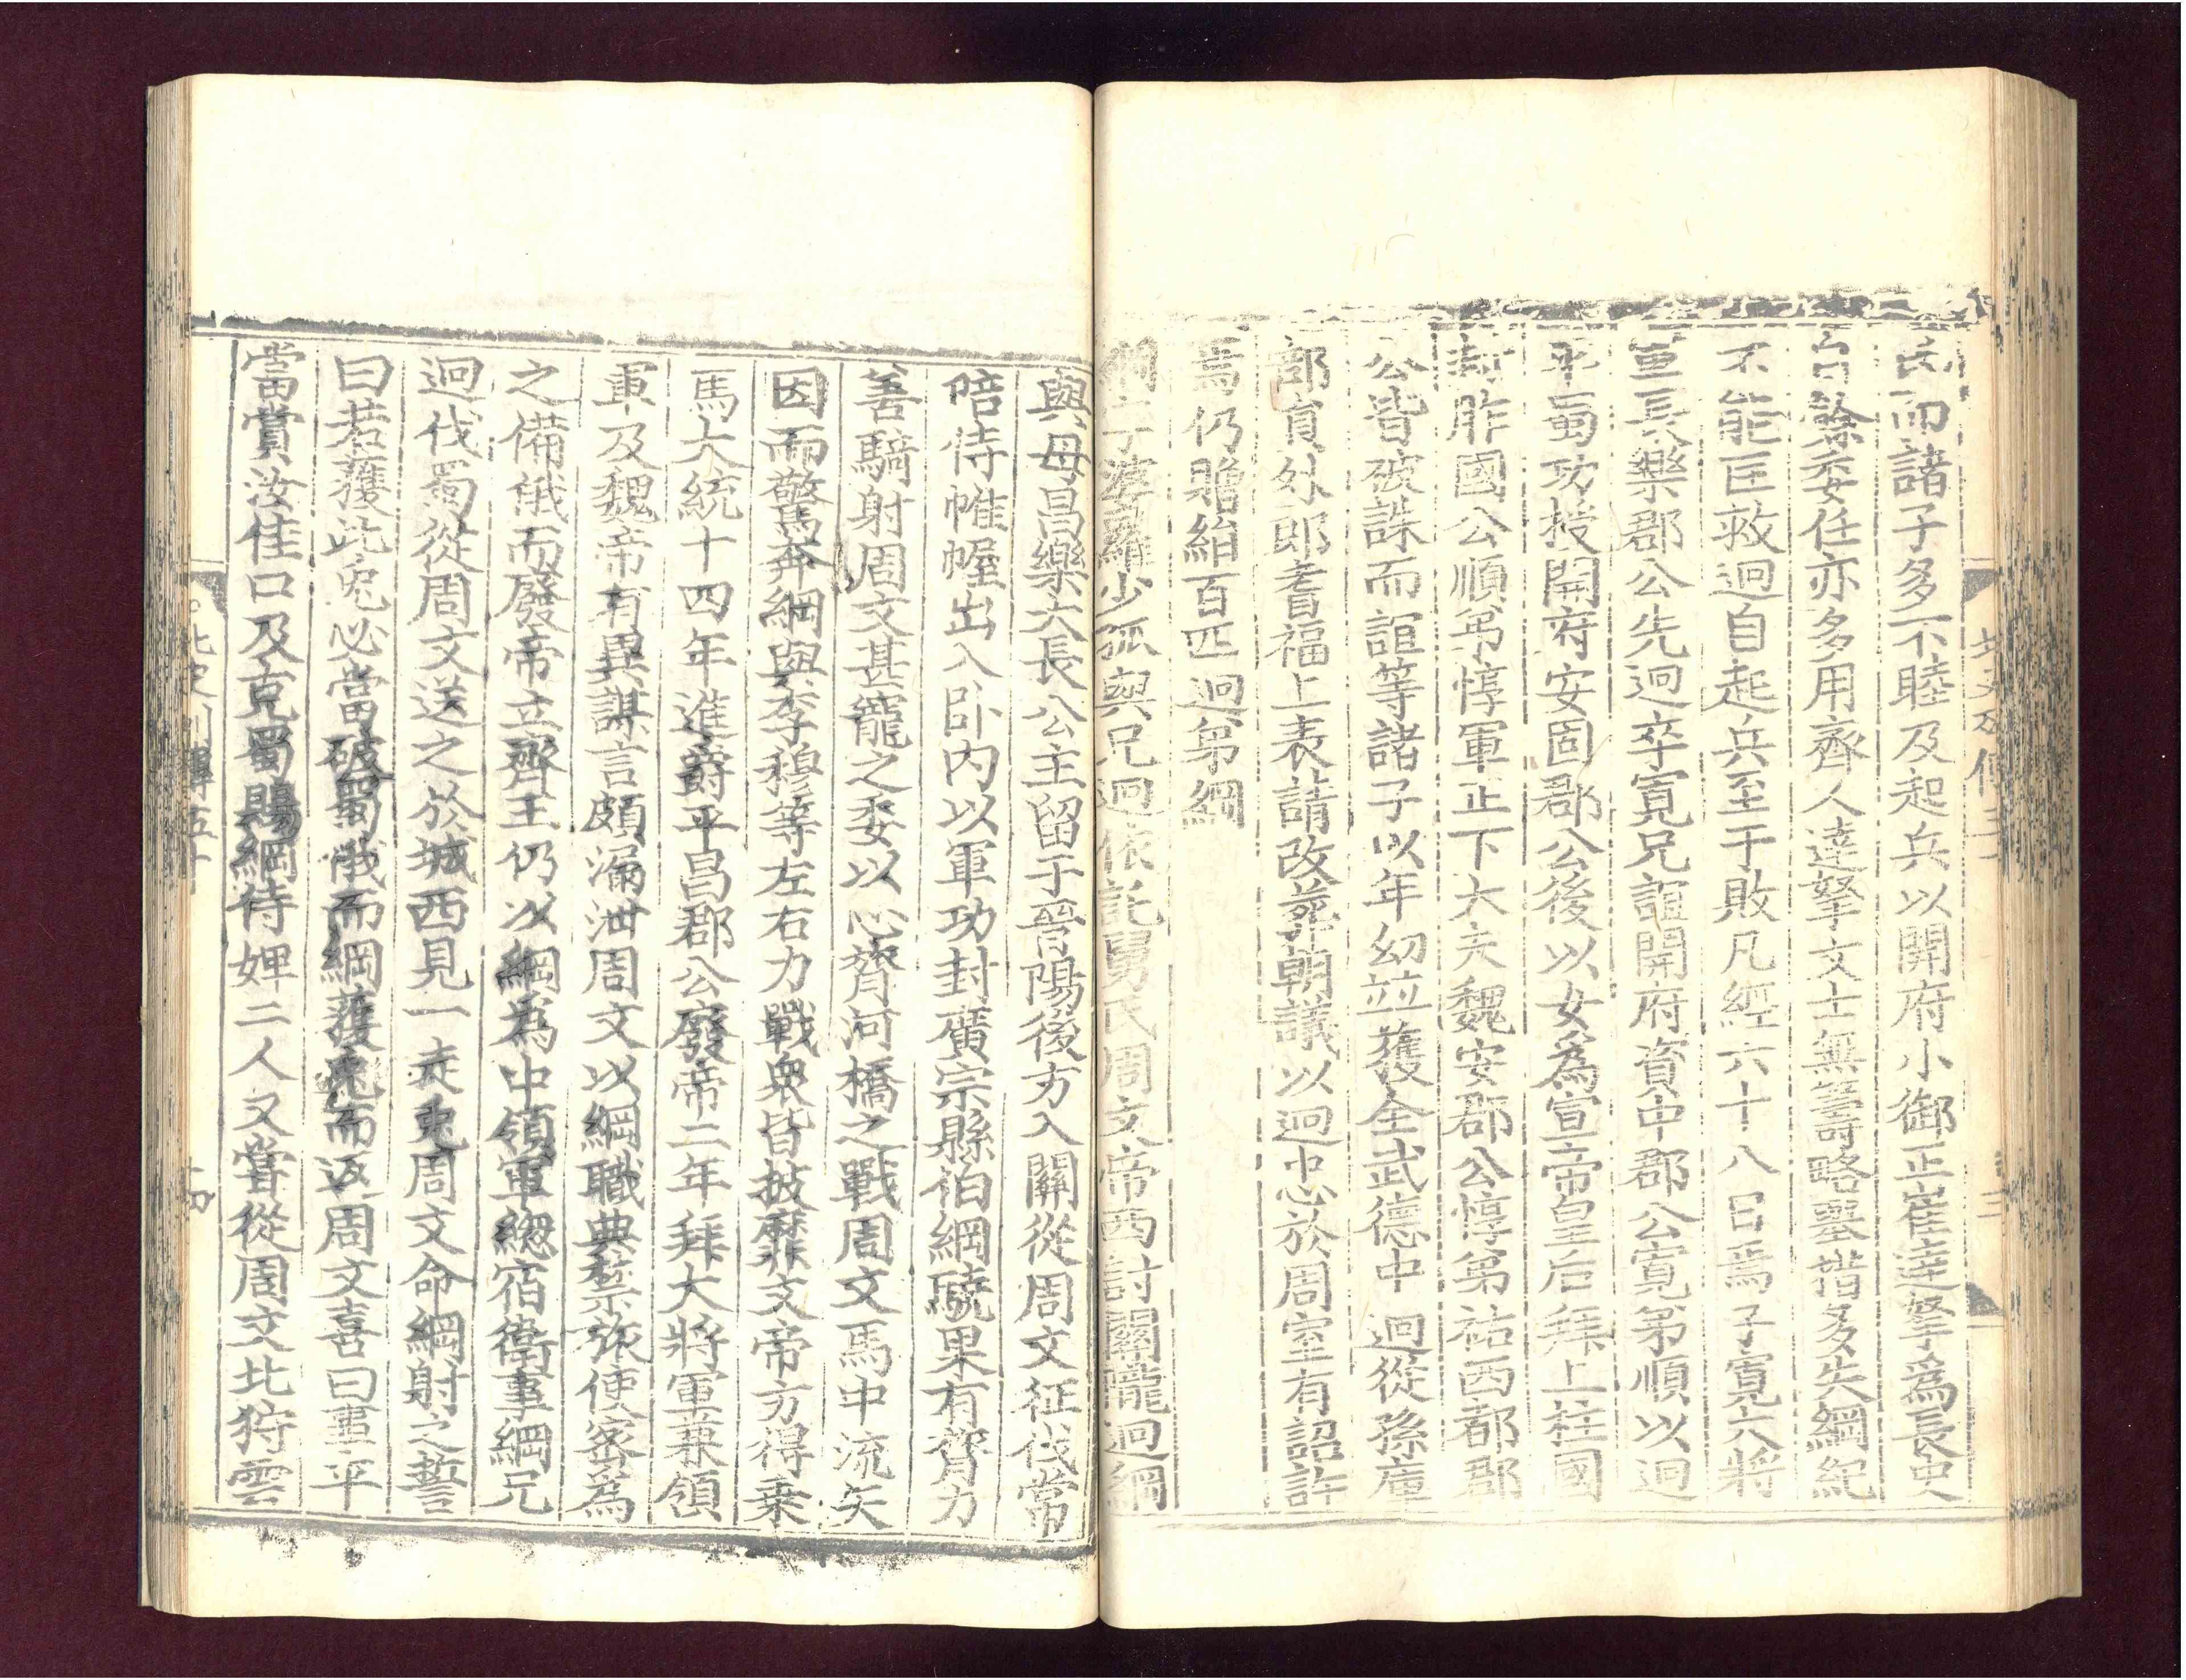 氏而諸子多不睦及起兵以開府小御正崔達拏爲長史
自餘委任亦多用齊人達拏文士無籌略舉措多失綱紀
不能匡救迥自起兵至于敗凡經六十八日焉子寬大將
軍長樂郡公先迥卒寬兄誼開府資中郡公寬弟順以迥
平蜀功授開府安固郡公後以女爲宣帝皇后拜上柱國
封胙國公順弟惇軍正下大夫魏安郡公惇弟祐西都郡
公皆破誅而誼等諸子以年幼並獲全武德中迥從孫庫
部員外郎耆福上表請改葬朝議以迥忠於周室有詔許
焉仍贈絹百匹迥弟綱
綱字婆羅少孤與兄迥依託舅氏周文帝西討關隴迥綱
與母昌樂大長公主留于晉陽後方入關從周文征伐常
陪侍帷幄出入卧内以軍功封廣宗縣伯綱驍果有膂力
善騎射周文甚寵之委以心膂河橋之戰周文馬中流矢
因而驚奔綱與李穆等左右力戰衆皆披靡文帝方得乗
馬大統十四年進爵平昌郡公廢帝二年拜大將軍兼領
軍及魏帝有異謀言頗漏泄周文以綱職典禁旅使密爲
之備俄而廢帝立齊王仍以綱爲中領軍緫宿衛事綱兄
迥伐蜀從周文送之於城西見一走兎周文命綱射之誓
曰若獲此兎必當破蜀俄而綱獲兎而返周文喜曰事平
當賞汝佳口及克蜀賜綱侍婢二人又嘗從周文北狩雲
北史列傳五十
十四